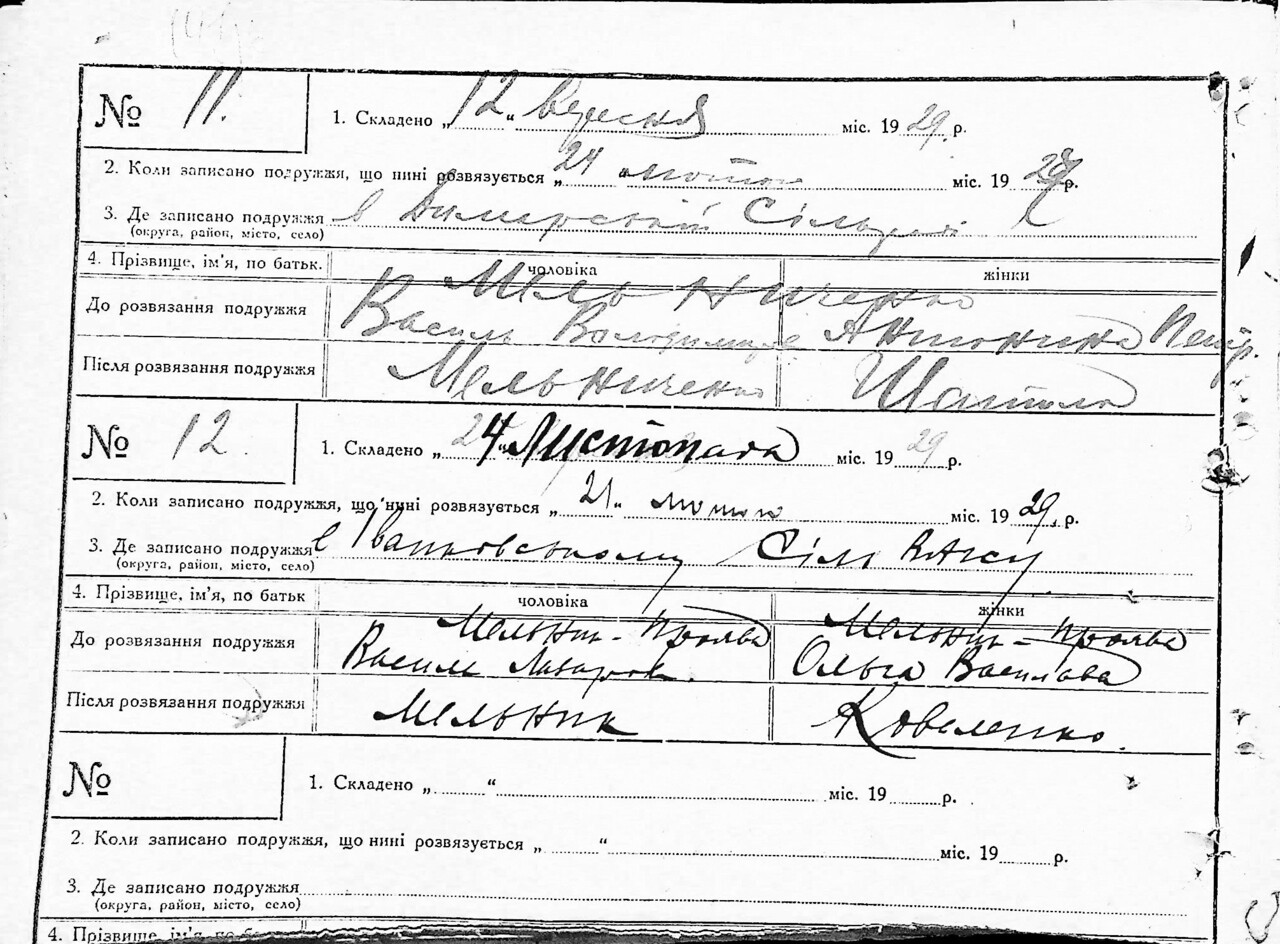 № 11. 1. Складено „12" вересня міс. 1929 р.
2. Коли записано подружжя, що нині розвязується „24" лютого міс. 1929 р.
3. Де записано подружжя в Димерській Сільраді
(округа, район, місто, село)
4. Прізвище, ім'я, по батьк. чоловіка жінки
Мельниченко
До розвязання подружжя Василь Антонина Петр.
Після розвязання подружжя Мельниченко
№ 12. 1. Складено „24" Листопада міс. 1929 р.
2. Коли записано подружжя, що нині розвязується „21" лютого міс. 1929 р.
3. Де записано подружжя в Іванковському Сіль
(округа, район, місто, село)
4. Прізвище, ім'я, по батьк чоловіка жінки
Мельник- Мельник-
До розвязання подружжя Василь Лазаров. Ольга Василівна
Після розвязання подружжя Мельник Коваленко.
№ 1. Складено „ " міс. 19 р.
2. Коли записано подружжя, що нині розвязується „ " міс. 19 р.
3. Де записано подружжя
(округа, район, місто, село)
4. Прізвище, ім'я, по